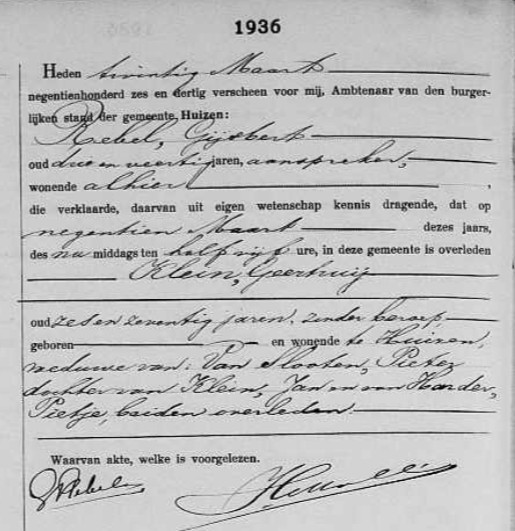 1936
Heden twintig Maart
negentienhonderd zes en dertig verscheen voor mij, Ambtenaar van den burger-
lijken stand der gemeente, Huizen:
Rebel, Gijsbert
oud drie en veertig jaren, aanspreker,
wonende alhier,
die verklaarde, daarvan uit eigen wetenschap kennis dragende, dat op
negentien Maart dezes jaars,
des na middags ten half vijf ure, in deze gemeente is overleden
Klein, Geertruij
oud zes en zeventig jaren, zonder beroep
geboren en wonende te Huizen,
weduwe van: Van Slooten, Pieter
dochter van Klein, Jan en van Harder,
Pietje, beiden overleden.
Waarvan akte, welke is voorgelezen.
GRebel